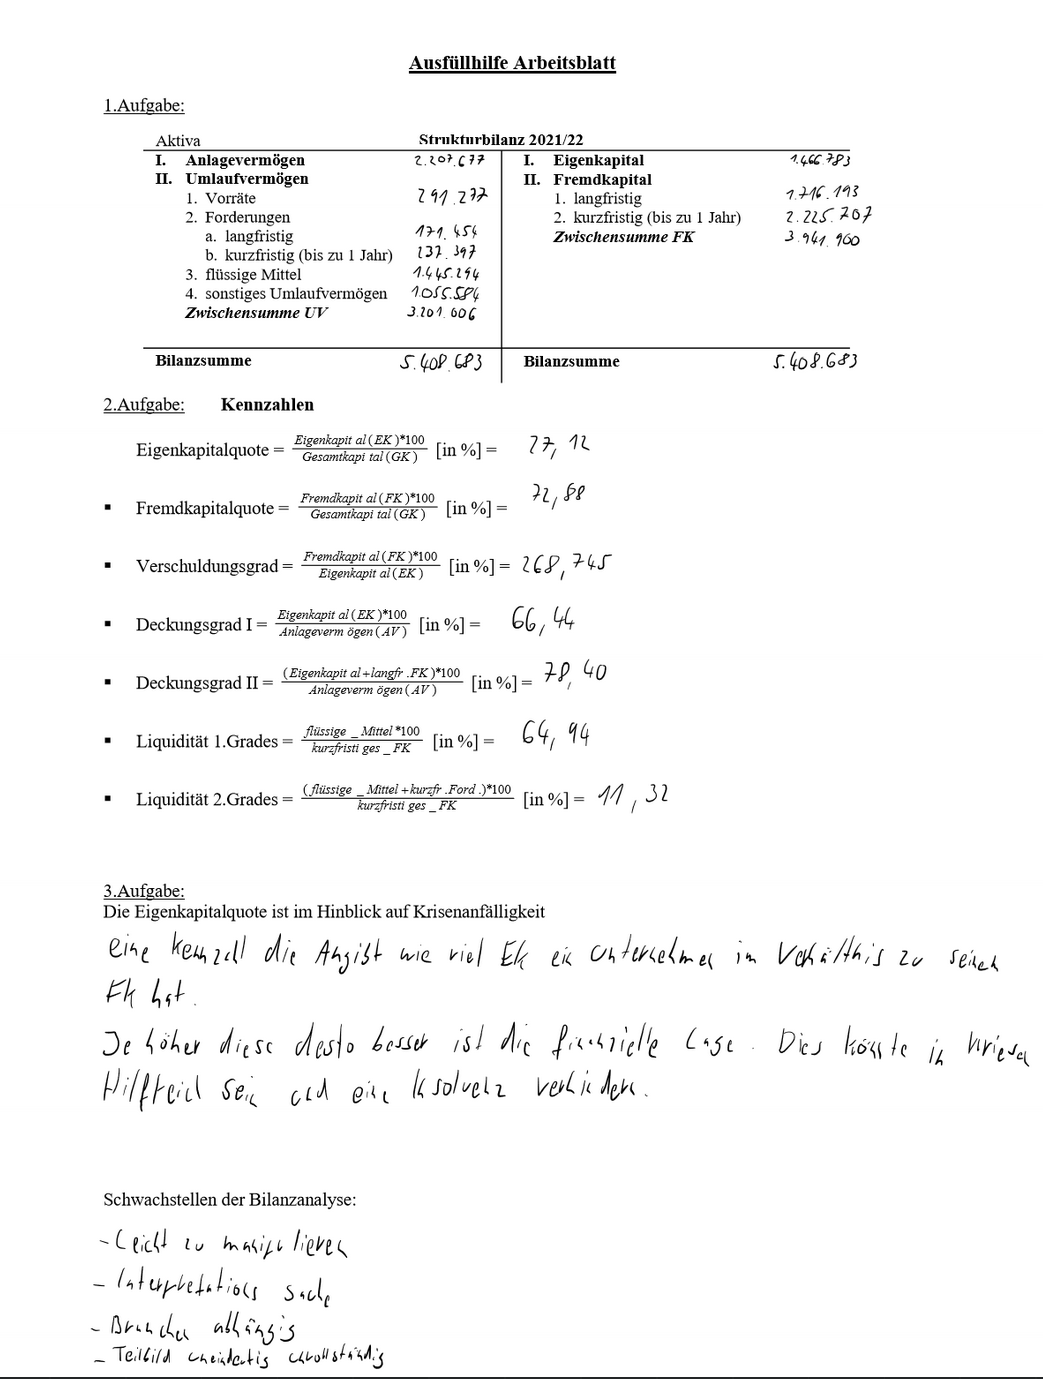 Ausfüllhilfe Arbeitsblatt
1.Aufgabe:
Aktiva Strukturbilanz 2021/22
I. Anlagevermögen 2.207.677 I. Eigenkapital 1.466.783
II. Umlaufvermögen II. Fremdkapital
1. Vorräte 291.277 1. langfristig 1.716.193
2. Forderungen 2. kurzfristig (bis zu 1 Jahr) 2.225.707
a. langfristig 171.454 Zwischensumme FK 3.941.900
b. kurzfristig (bis zu 1 Jahr) 237.397
3. flüssige Mittel 1.445.294
4. sonstiges Umlaufvermögen 1.055.584
Zwischensumme UV 3.201.006
Bilanzsumme 5.408.683 Bilanzsumme 5.408.683
2.Aufgabe: Kennzahlen
Eigenkapitalquote = Eigenkapit al (EK )*100 / Gesamtkapi tal (GK ) [in %] = 27,12
▪ Fremdkapitalquote = Fremdkapit al (FK )*100 / Gesamtkapi tal (GK ) [in %] = 72,88
▪ Verschuldungsgrad = Fremdkapit al (FK )*100 / Eigenkapit al (EK ) [in %] = 268,745
▪ Deckungsgrad I = Eigenkapit al (EK )*100 / Anlageverm ögen (AV ) [in %] = 66,44
▪ Deckungsgrad II = (Eigenkapit al +langfr .FK )*100 / Anlageverm ögen (AV ) [in %] = 78,40
▪ Liquidität 1.Grades = flüssige _ Mittel *100 / kurzfristi ges _ FK [in %] = 64,94
▪ Liquidität 2.Grades = ( flüssige _ Mittel +kurzfr .Ford .)*100 / kurzfristi ges _ FK [in %] = 11,32
3.Aufgabe:
Die Eigenkapitalquote ist im Hinblick auf Krisenanfälligkeit
eine kennzall die Angibt wie viel EK ein Unternehmen im Verhältnis zu seinen
FK hat.
Je höher diese desto besser ist die finanzielle Lage. Dies könnte in kriesen
Hilfreich sein und eine Insolvenz verhindern.
Schwachstellen der Bilanzanalyse:
- Leicht zu manipulieren
- Interpretations sache
- Branchen abhängig
- Teilbild uneindeutig unvollständig